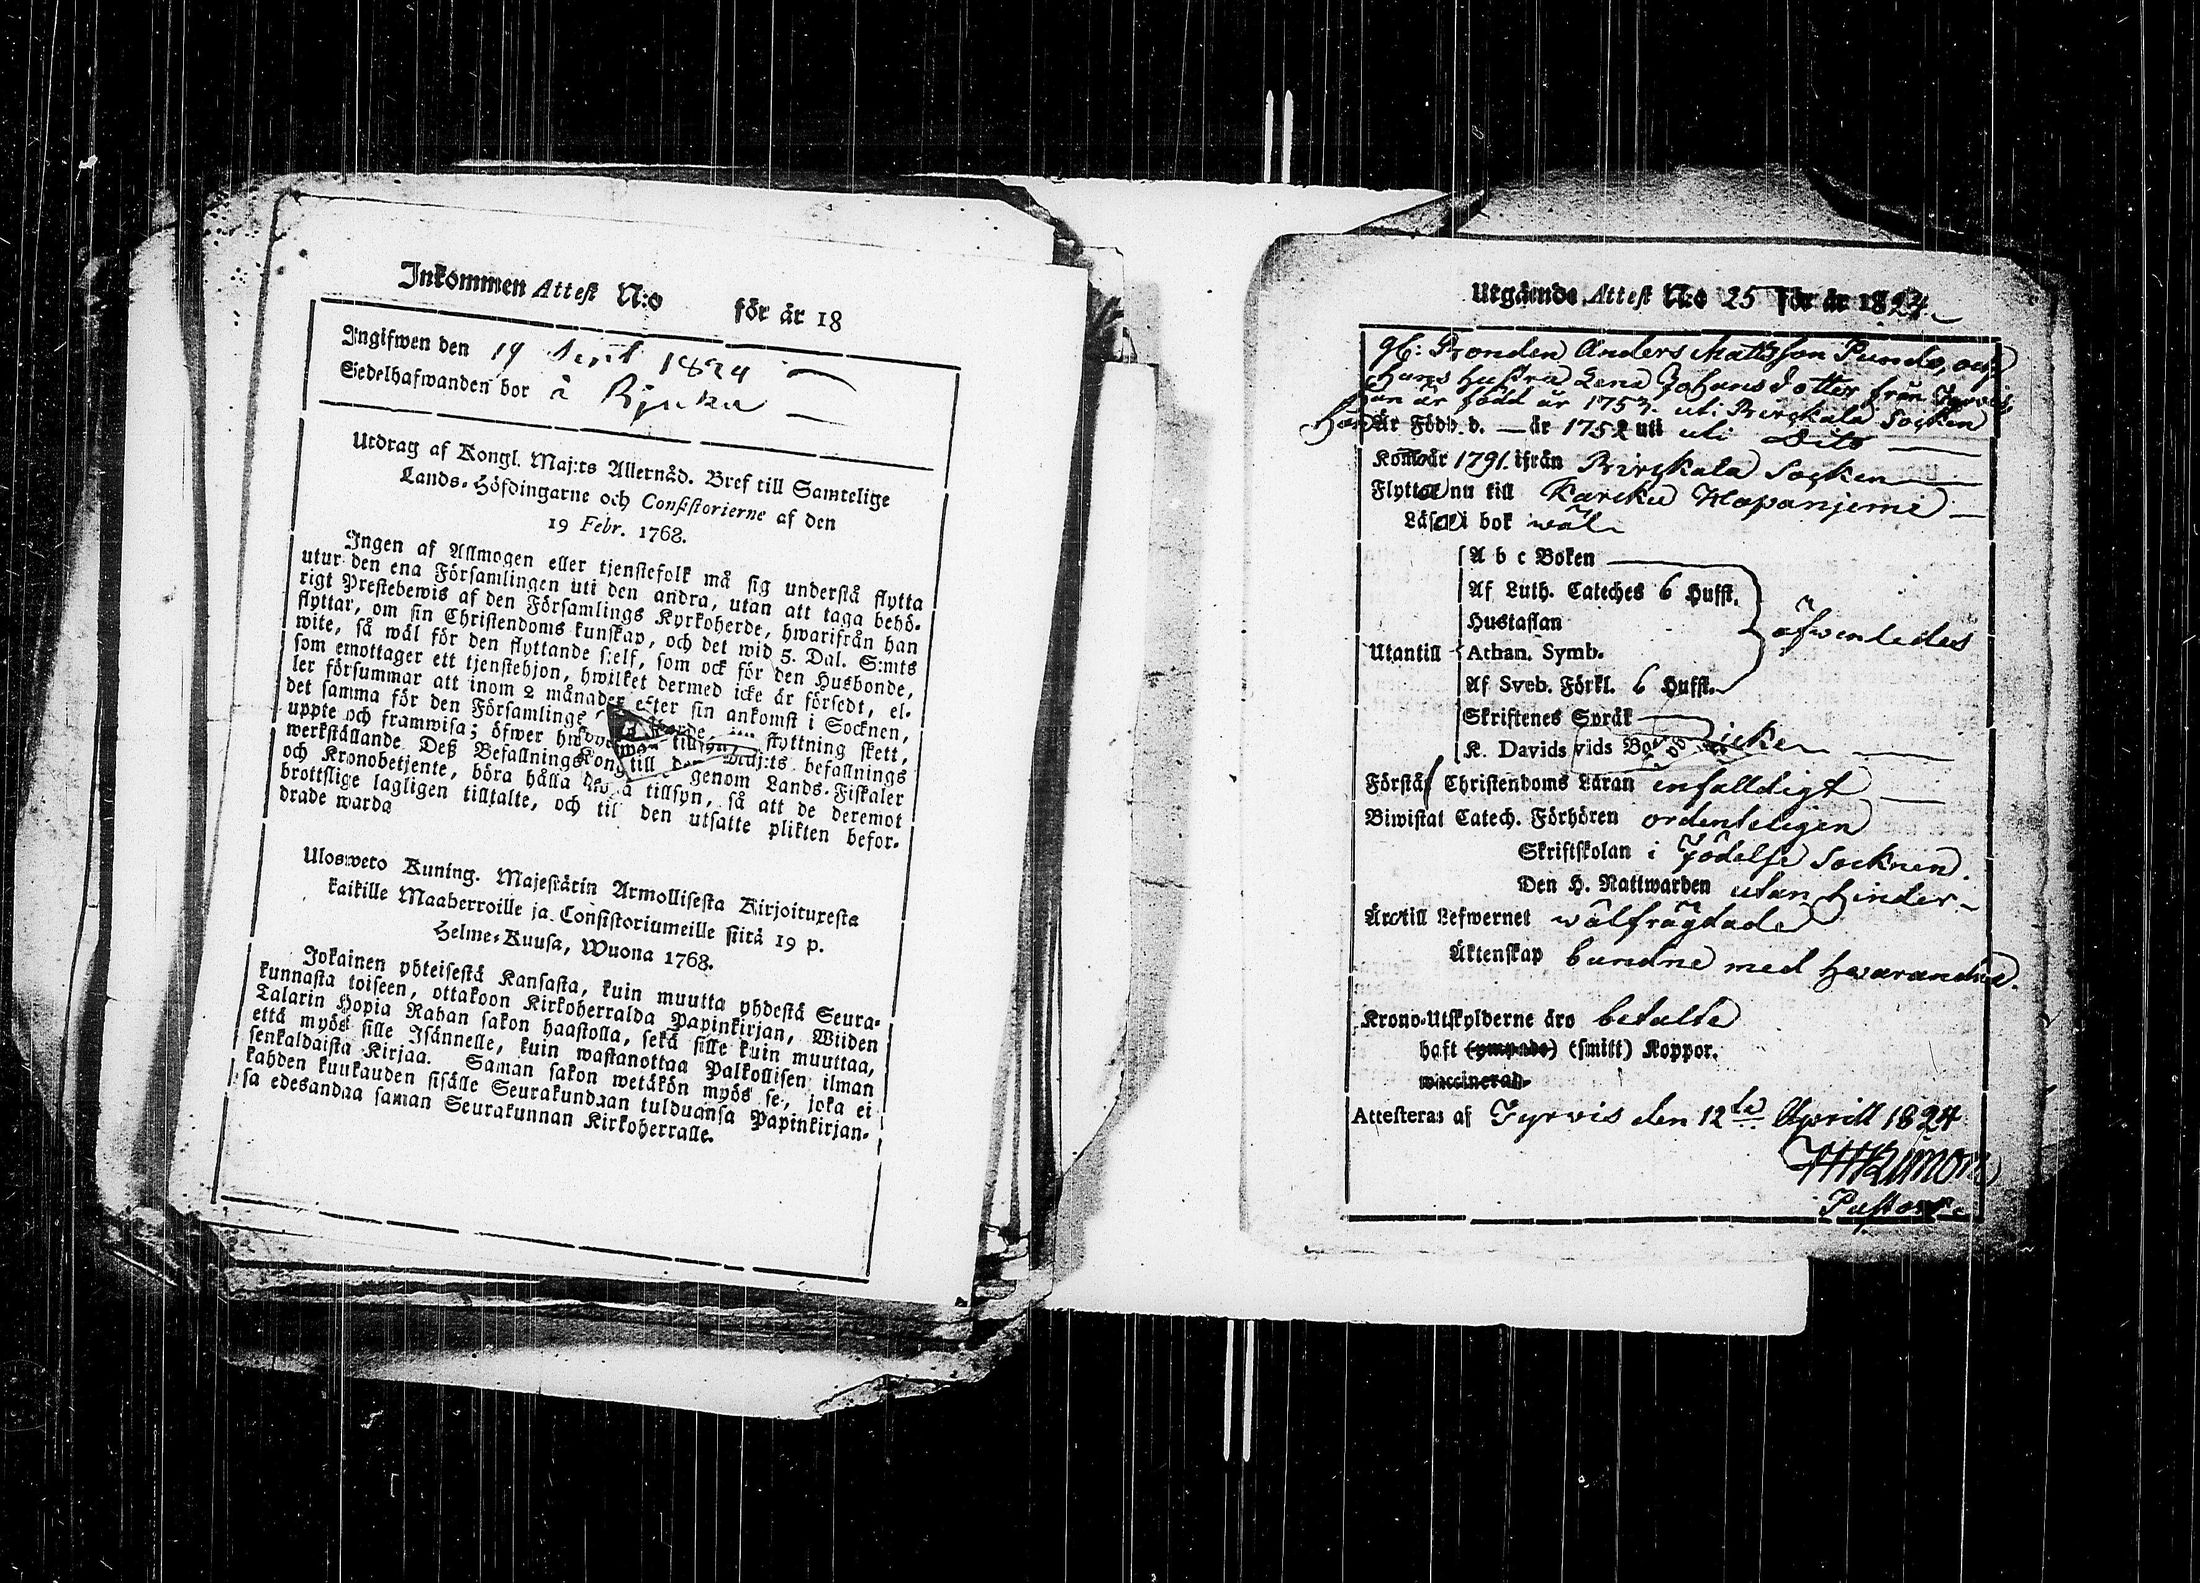 Inkommen Attest N:o för år 18
Ingifwen den 19 Sept 1824
Sedelhafwanden bor å
Utdrag af Kongl. Maj:ts Allernåd. Bref till Samtelige
Lands-Höfdingarne och Consistorierne af den
19 Febr. 1768.
Ingen af Allmogen eller tjenstefolk må sig understå flytta
utur den ena Församlingen uti den andra, utan att taga behö-
rigt Prestebewis af den Församlings Kyrkoherde, hwarifrån han
flyttar, om sin Christendoms kunskap, och det wid 5. Dal. S:mts
wite, så wäl för den flyttande sjelf, som ock för den Husbonde,
som emottager ett tjenstehjon, hwilket dermed icke är försedt, el-
ler försummar att inom 2 månader efter sin ankomst i Socknen,
det samma för den Församlings flyttning skett,
uppte och framwisa; öfwer befallnings
werkställande Deß Befallnings genom Lands-Fiskaler
och Kronobetjente, böra hålla tillsyn, så att de deremot
brottslige lagligen tilltalte, och till den utsatte plikten befor-
drade warda
Uloswero Kuning. Majestätin Armollisesta Kirjoituxesta
kaikille Maaherroille ja Consistoriumeille siitä 19 p.
Helme-Kuusa, Wuona 1768.
Jokainen yhteisestä Kansasta, kuin muutta yhdestä Seura-
kunnasta toiseen, ottakoon Kirkoherralda Papinkirjan, Wiiden
Talarin Hopia Rahan sakon haastolla, sekä sille kuin muuttaa,
että myös sille Isännelle, kuin wastanottaa Palkollisen ilman
senkaldaista Kirjaa. Saman sakon wetäkön myös se, joka ei
kahden kuukauden sisälle Seurakundaan tulduansa Papinkirjan-
sa edesandaa saman Seurakunnan Kirkoherralle.
Utgående Attest N:o 25 för år 1824
Bonden Anders Mattsson Pundo, och
hans hustru Lena Johansdotter från Tyrvis
hon är född år 1753. uti Birckala Socken
Han Är Född d. — år 1752 uti uti Dito
Kom år 1791. ifrån Birckala Socken
Flytta nu till Karcku Hapanjemi
Läsa i bok wäl
Utantill
A b c Boken
Af Luth. Cateches 6 Hufst.
Hustaflan
Athan. Symb.
Af Sveb. Förkl. 6 Hufst.
äfwenledes
Skriftenes Språk
K. Davids icke
Förstå Christendoms Läran enfalldigt
Biwistat Catech. Förhören ordenteligen
Skriftskolan i Födelse Socknen.
Den H. Nattwarden utan hinder
Äro till Lefwernet wälfrägdade
Äktenskap bundne med hwarandra.
Krono-Utskylderne äro betalte
haft (ympade) (smitt) Koppor.
waccinerad
Attesteras af Tyrvis den 12te Aprill 1824
Pastor